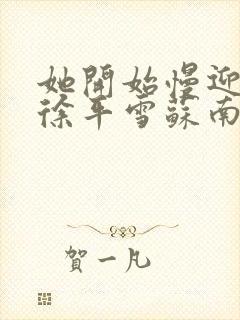 她開始慢迎
徐平雪蘇南
賀一凡